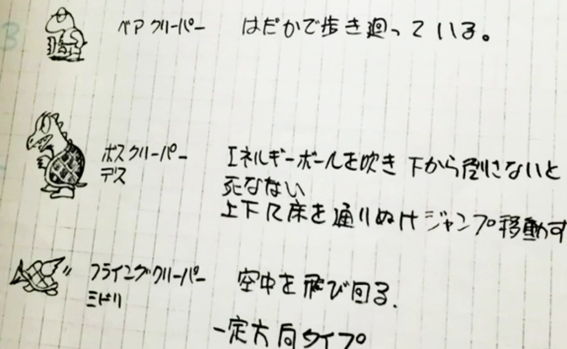 ベアクリーパー はだかで歩き廻っている。
ボスクリーパー エネルギーボールを吹き 下から倒さないと
デス 死なない
上下に床を通りぬけジャンプ移動す
フライングクリーパー 空中を飛び回る.
ミドリ
一定方向タイプ